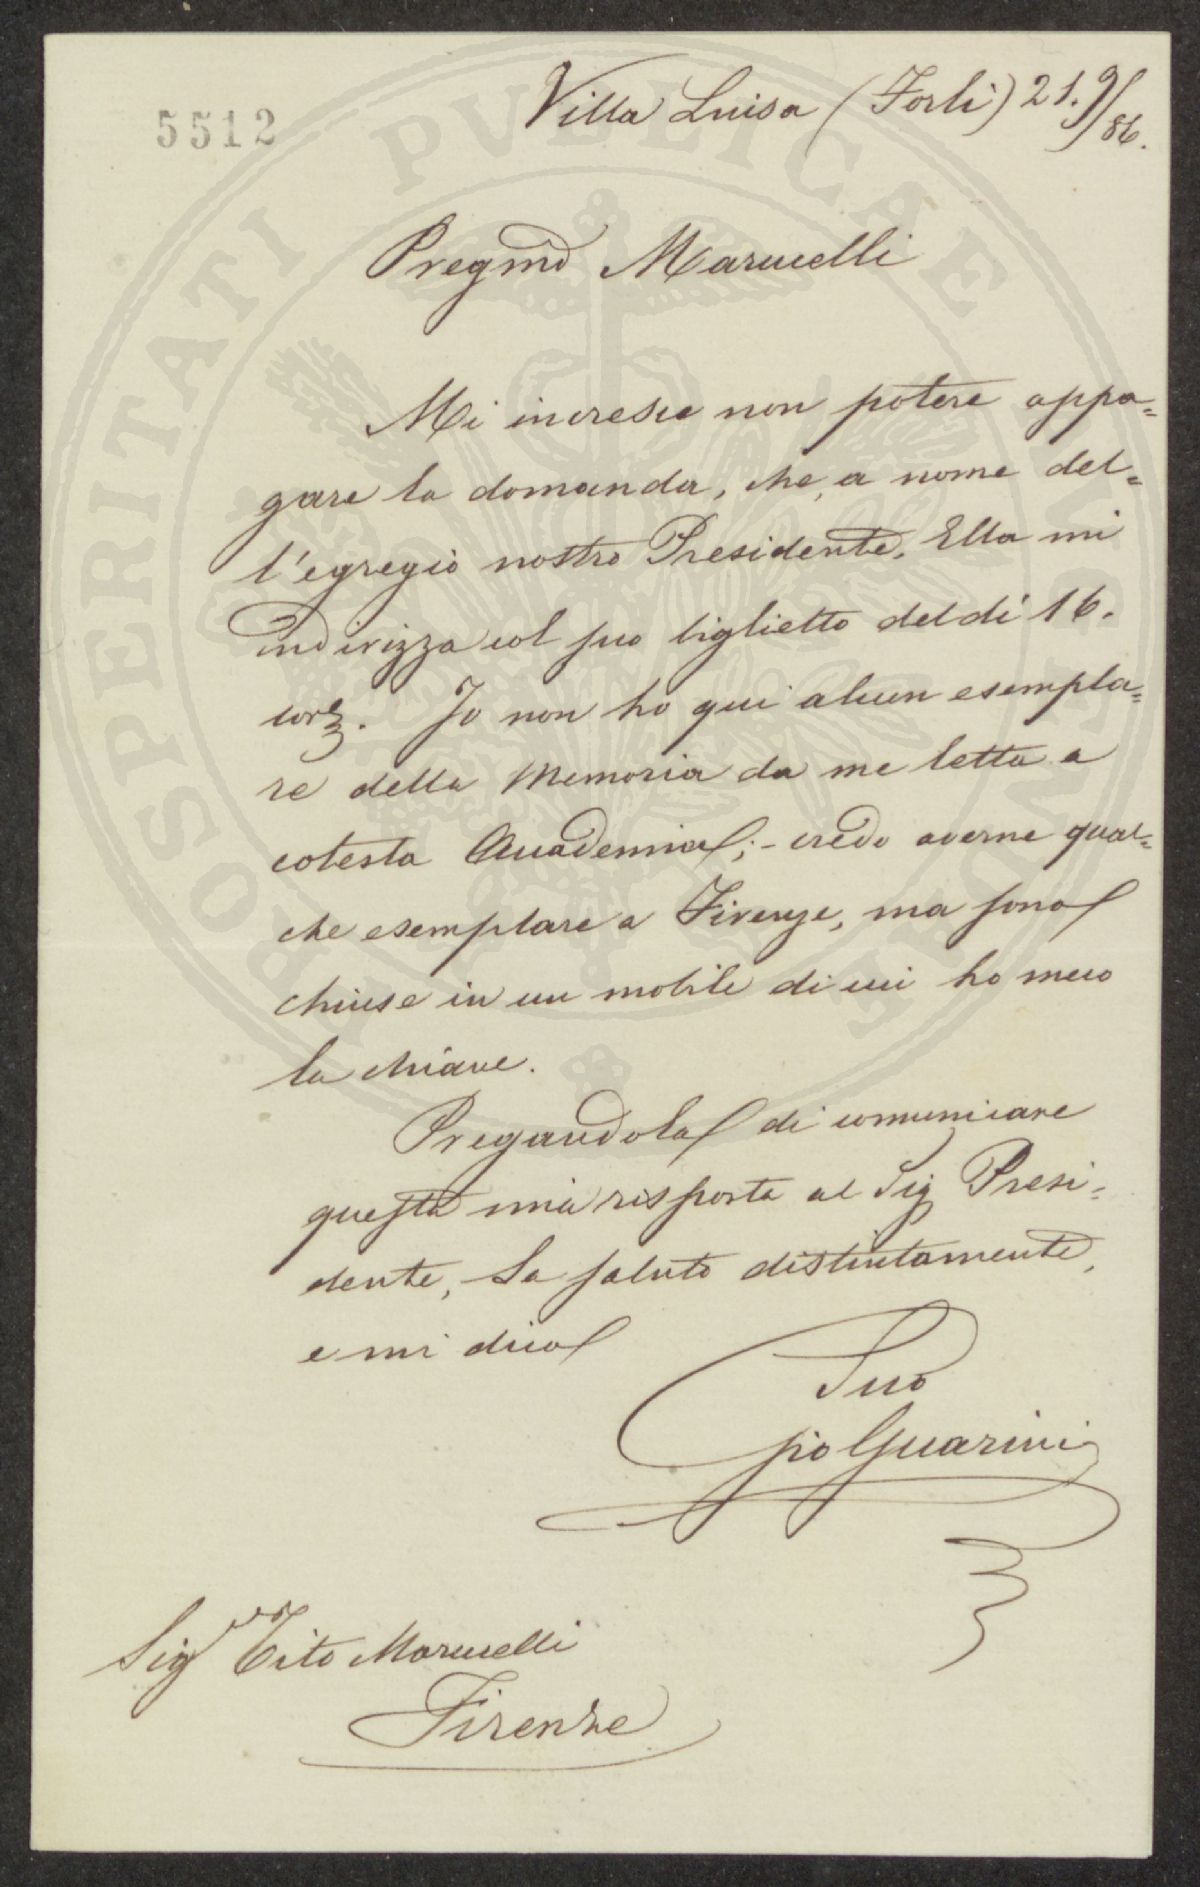 5512
Villa Luisa (Forlì) 21. 9/86.
Pregmo Marucelli
Mi incresce non potere appa=
gare la domanda, che, a nome del=
l'egregio nostro Presidente, Ella mi
indirizza col suo biglietto del dì 16.
corr. Io non ho qui alcun esempla=
re della Memoria da me letta a
cotesta Accademia; - credo averne qual=
che esemplare a Firenze, ma sono
chiuse in un mobile di cui ho meco
la chiave.
Pregandola di comunicare
questa mia risposta al Sig Presi=
dente, La saluto distintamente,
e mi dico
Suo
Pio Guarini
Sigr Tito Marucelli
Firenze
PROSPERITATI PVBLICAE AVGENDAE